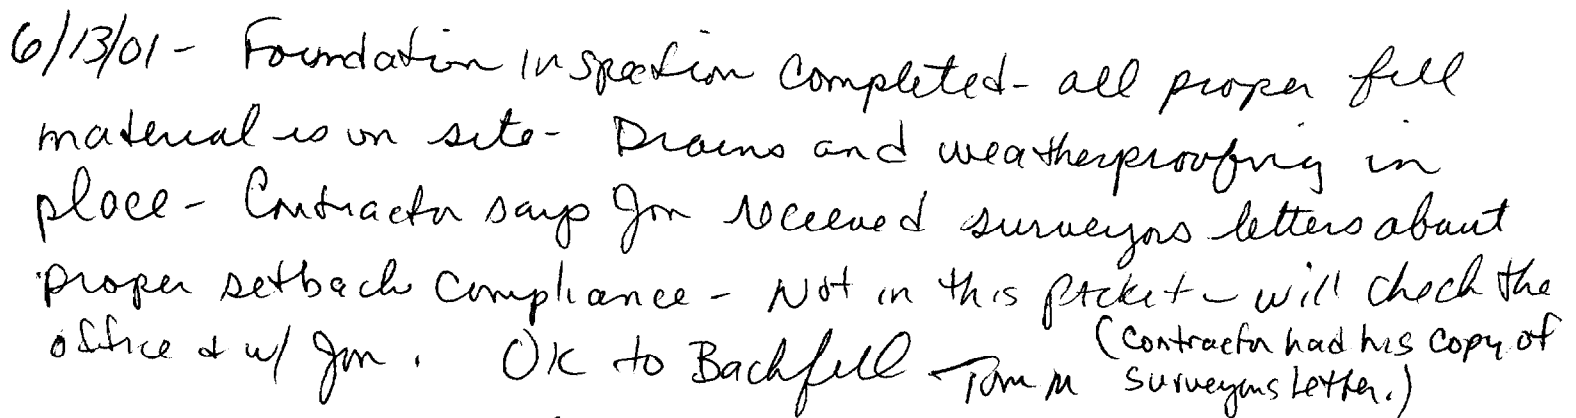 6/13/01 - Foundation inspection completed - all proper fill
material is on site - Drains and weatherproofing in
place - Contractor says Jon received surveyors letters about
proper setback compliance - Not in this packet - will check the
office & w/ Jon. OK to Backfill - Tom M (Contractor had his copy of
surveyors letter.)